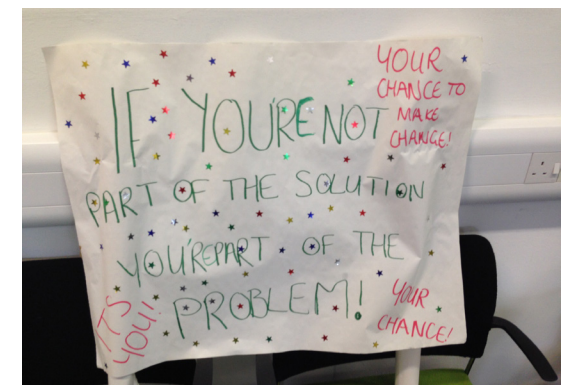 IF YOU'RE NOT
PART OF THE SOLUTION
YOU'RE PART OF THE
PROBLEM!
YOUR
CHANCE TO
MAKE
CHANGE!
IT'S
YOU!
YOUR
CHANCE!